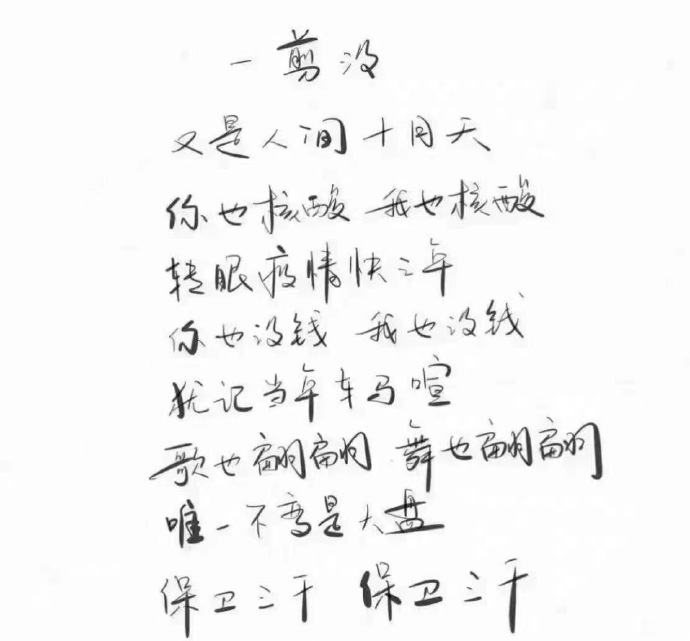 一剪没
又是人间十月天
你也核酸 我也核酸
转眼疫情快三年
你也没钱 我也没钱
犹记当年车马喧
歌也翩翩 舞也翩翩
唯一不变是大盘
保卫三千 保卫三千